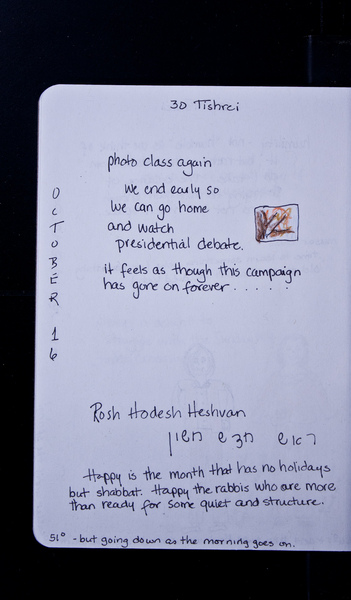 30 Tishrei
photo class again
we end early so
we can go home
and watch
presidential debate.
it feels as though this campaign
has gone on forever . . . . .
OCTOBER 16
Rosh Hodesh Heshvan
ראש חדש חשון
Happy is the month that has no holidays
but shabbat. Happy the rabbis who are more
than ready for some quiet and structure.
51° - but going down as the morning goes on.